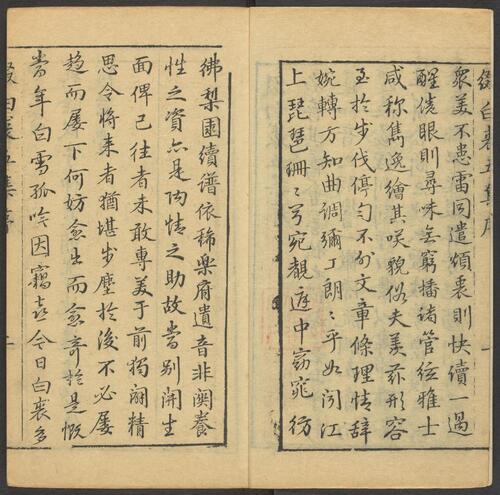 綴白裘五集序
衆美不患雷同遣煩衷則快續一過
醒倦眼則尋味無窮播諸管絃雅士
咸称雋逸繪其咲貌俗夫羨茲形容
至扵步伐停勻不外文章條理情辞
婉轉方知曲調彌工朗〻乎如闻江
上琵琶珊〻兮宛覯庭中窈窕彷
彿梨園續譜依稀樂府遺音非関養
性之資亦是陶情之助故嘗别開生
面俾已往者未敢專美于前獨闢精
思令將来者猶堪步塵扵後不必屡
趋而屡下何妨愈出而愈竒扵是慨
當年白雪孤吟因竊喜今日白裘多
綴白裘五集序